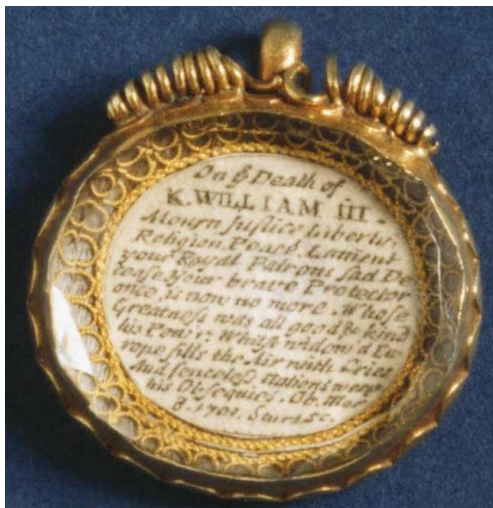 On yͤ Death of
K. WILLIAM III.
Mourn Justice Liberty
Religion, Peace, Lament
your Royal Patrons sad De
cease. Your brave Protector
once, is now no more. Whose
Greatness was all good, &
his Power. Whilst widow'd Eu
rope fills the Air with Cries
And senceless Nations weep
his Obsequies. Ob. Mar
8. 1701. Sturt sc.